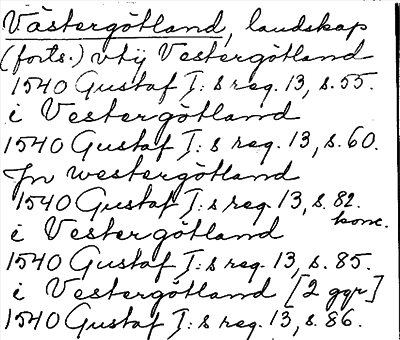 Västergötland, landskap
(forts.) vtij Vestergötland
1540 Gustaf I:s reg. 13, s. 55.
i Vestergötland
1540 Gustaf I:s reg. 13, s. 60.
Jn westergötland
1540 Gustaf I:s reg. 13, s. 82.
konc.
i Vestergötland
1540 Gustaf I:s reg. 13, s. 85.
i Vestergötland [2 ggr]
1540 Gustaf I:s reg. 13, s. 86.